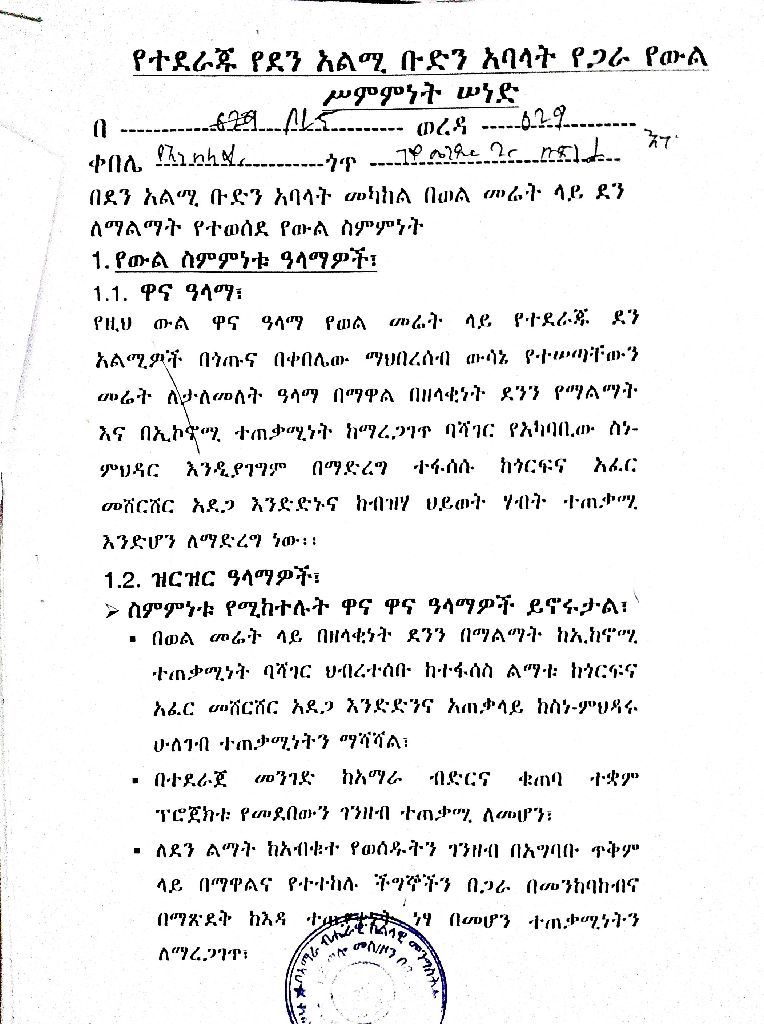 የተደራጁ የደን አልሚ ቡድን አባላት የጋራ የውል
ሥምምነት ሠነድ
በ ወረዳ
ቀበሌ ጎጥ
በደን አልሚ ቡድን አባላት መካከል በወል መሬት ላይ ደን
ለማልማት የተወሰደ የውል ስምምነት
1. የውል ስምምነቱ ዓላማዎች፣
1.1. ዋና ዓላማ፣
የዚህ ውል ዋና ዓላማ የወል መሬት ላይ የተደራጁ ደን
አልሚዎች በጎጡና በቀበሌው ማህበረሰብ ውሳኔ የተሠጣቸውን
መሬት ለታለመለት ዓላማ በማዋል በዘላቂነት ደንን የማልማት
እና በኢኮኖሚ ተጠቃሚነት ከማረጋገጥ ባሻገር የአካባቢው ስነ-
ምህዳር እንዲያገግም በማድረግ ተፋሰሱ ከጎርፍና አፈር
መሸርሸር አደጋ እንድድኑና ከብዝሃ ህይወት ሃብት ተጠቃሚ
እንድሆን ለማድረግ ነው፡፡
1.2. ዝርዝር ዓላማዎች፣
➢ ስምምነቱ የሚከተሉት ዋና ዋና ዓላማዎች ይኖሩታል፣
▪ በወል መሬት ላይ በዘላቂነት ደንን በማልማት ከኢኮኖሚ
ተጠቃሚነት ባሻገር ህብረተሰቡ ከተፋሰስ ልማቱ ከጎርፍና
አፈር መሸርሸር አደጋ እንድድንና አጠቃላይ ከስነ-ምህዳሩ
ሁለገብ ተጠቃሚነትን ማሻሻል፣
▪ በተደራጀ መንገድ ከአማራ ብድርና ቁጠባ ተቋም
ፕሮጀክቱ የመደበውን ገንዘብ ተጠቃሚ ለመሆን፣
▪ ለደን ልማት ከአብቁተ የወሰዱትን ገንዘብ በአግባቡ ጥቅም
ላይ በማዋልና የተተከሉ ችግኞችን በጋራ በመንከባከብና
በማጽደት ከእዳ ተጠያቂነት ነፃ በመሆን ተጠቃሚነትን
ለማረጋገጥ፣
በአማራ ብሔራዊ ክልላዊ መንግስት